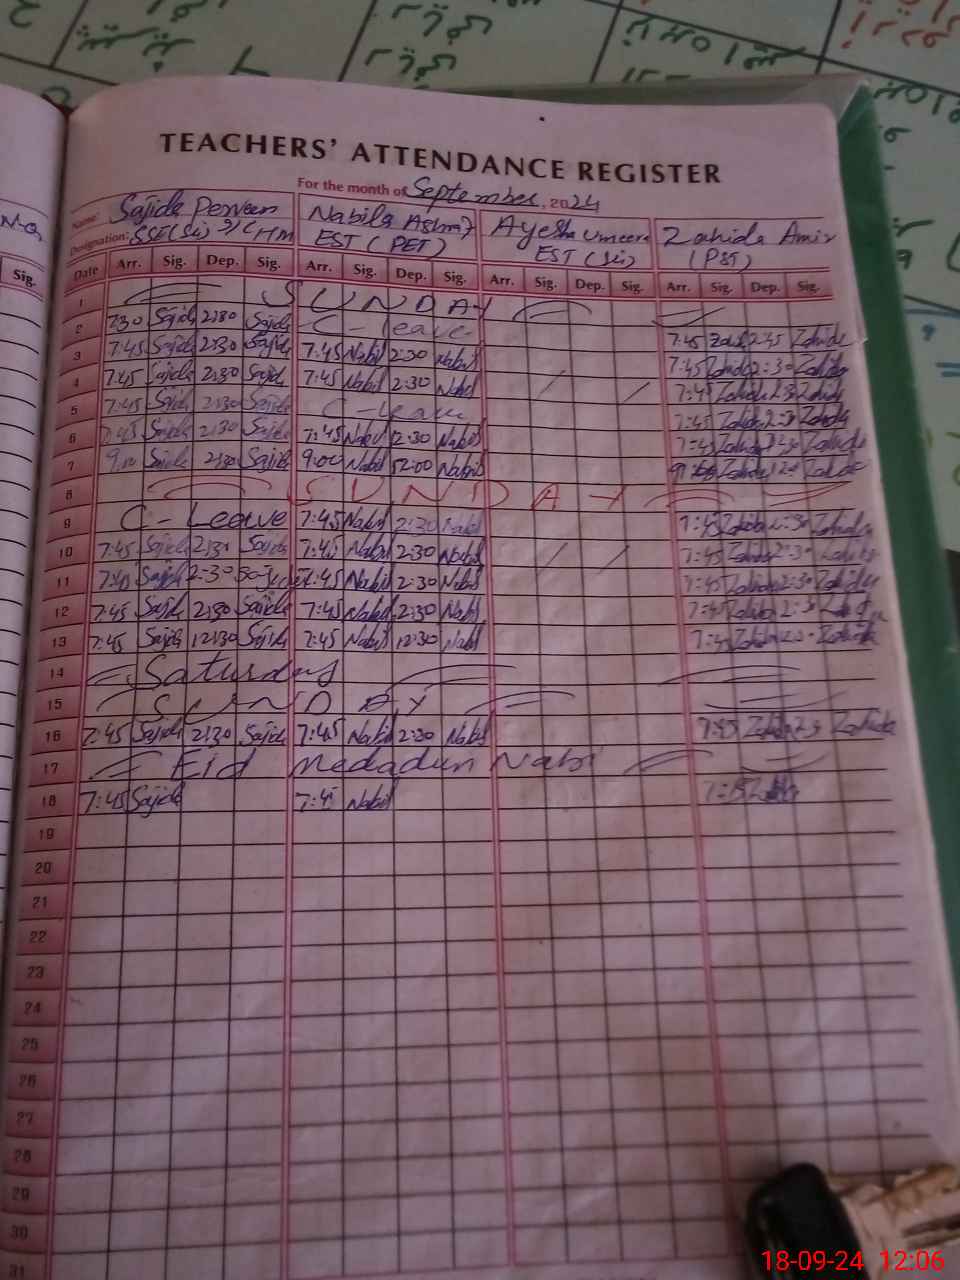 TEACHERS' ATTENDANCE REGISTER
For the month of September, 2024
Name: Sajida Perveen Nabila Ashraf Ayesha Umeera Zahida Amir
Designation: SSE(Sci) I/C HM EST (PET) EST (Sci) (PST)
Sig.
Date Arr. Sig. Dep. Sig. Arr. Sig. Dep. Sig. Arr. Sig. Dep. Sig. Arr. Sig. Dep. Sig.
1 SUNDAY
2 7:30 Sajida 2:30 Sajida C-leave 7:45 Zahida 2:45 Zahida
3 7:45 Sajida 2:30 Sajida 7:45 Nabil 2:30 Nabil 7:45 Zahida 2:30 Zahida
4 7:45 Sajida 2:30 Sajida 7:45 Nabil 2:30 Nabil 7:45 Zahida 2:30 Zahida
5 7:45 Sajida 2:30 Sajida C-leave 7:45 Zahida 2:30 Zahida
6 7:45 Sajida 12:30 Sajida 7:45 Nabil 12:30 Nabil 7:45 Zahida Zahida
7 9:00 Sajida Sajida 9:00 Nabil 12:00 Nabil Zahida Zahida
8 SUNDAY
9 C-Leave 7:45 Nabil 2:30 Nabil 7:45 Zahida 2:30 Zahida
10 7:45 Sajida 2:30 Sajida 7:45 Nabil 2:30 Nabil 7:45 Zahida 2:30 Zahida
11 7:45 Sajida 2:30 Sajida 7:45 Nabil 2:30 Nabil 7:45 Zahida 2:30 Zahida
12 7:45 Sajida 2:30 Sajida 7:45 Nabil 2:30 Nabil 7:45 Zahida 2:30 Zahida
13 7:45 Sajida 12:30 Sajida 7:45 Nabil 12:30 Nabil 7:45 Zahida Zahida
14 Saturday
15 SUNDAY
16 7:45 Sajida 2:30 Sajida 7:45 Nabil 2:30 Nabil 7:45 Zahida 2:30 Zahida
17 Eid Meeladun Nabi
18 7:45 Sajida 7:45 Nabil 7:45
19
20
21
22
23
24
25
26
27
28
29
30
31
18-09-24 12:06